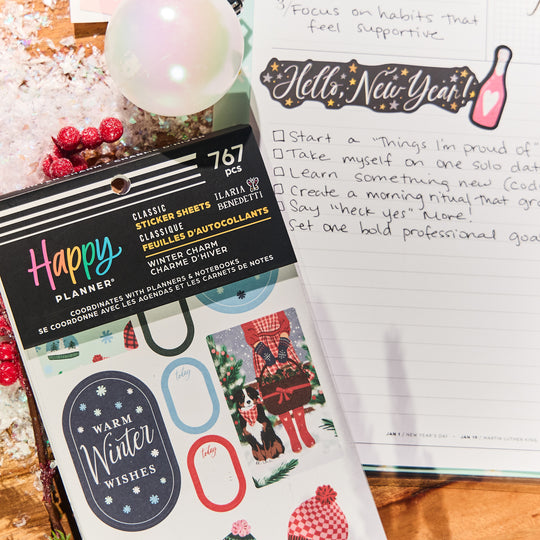 3/ Focus on habits that
feel supportive
Hello, New Year!
Start a "Things I'm proud of"
Take myself on one solo dat
Learn something new (cod
Create a morning ritual that gr
Say "heck yes" More!
Set one bold professional goa
JAN 1 / NEW YEAR'S DAY • JAN 19 / MARTIN LUTHER KING
767
PCS
CLASSIC
STICKER SHEETS
CLASSIQUE
FEUILLES D'AUTOCOLLANTS
ILARIA
BENEDETTI
WINTER CHARM
CHARME D'HIVER
Happy
PLANNER®
COORDINATES WITH PLANNERS & NOTEBOOKS
SE COORDONNE AVEC LES AGENDAS ET LES CARNETS DE NOTES
today
today
WARM
Winter
WISHES